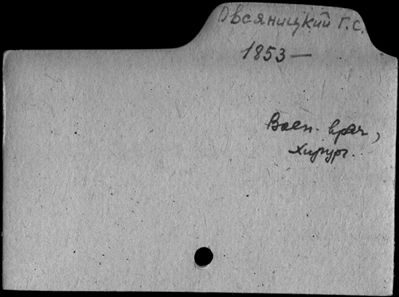 Овсяницкий Г.С.
1853 —
Воен. врач,
хирург.